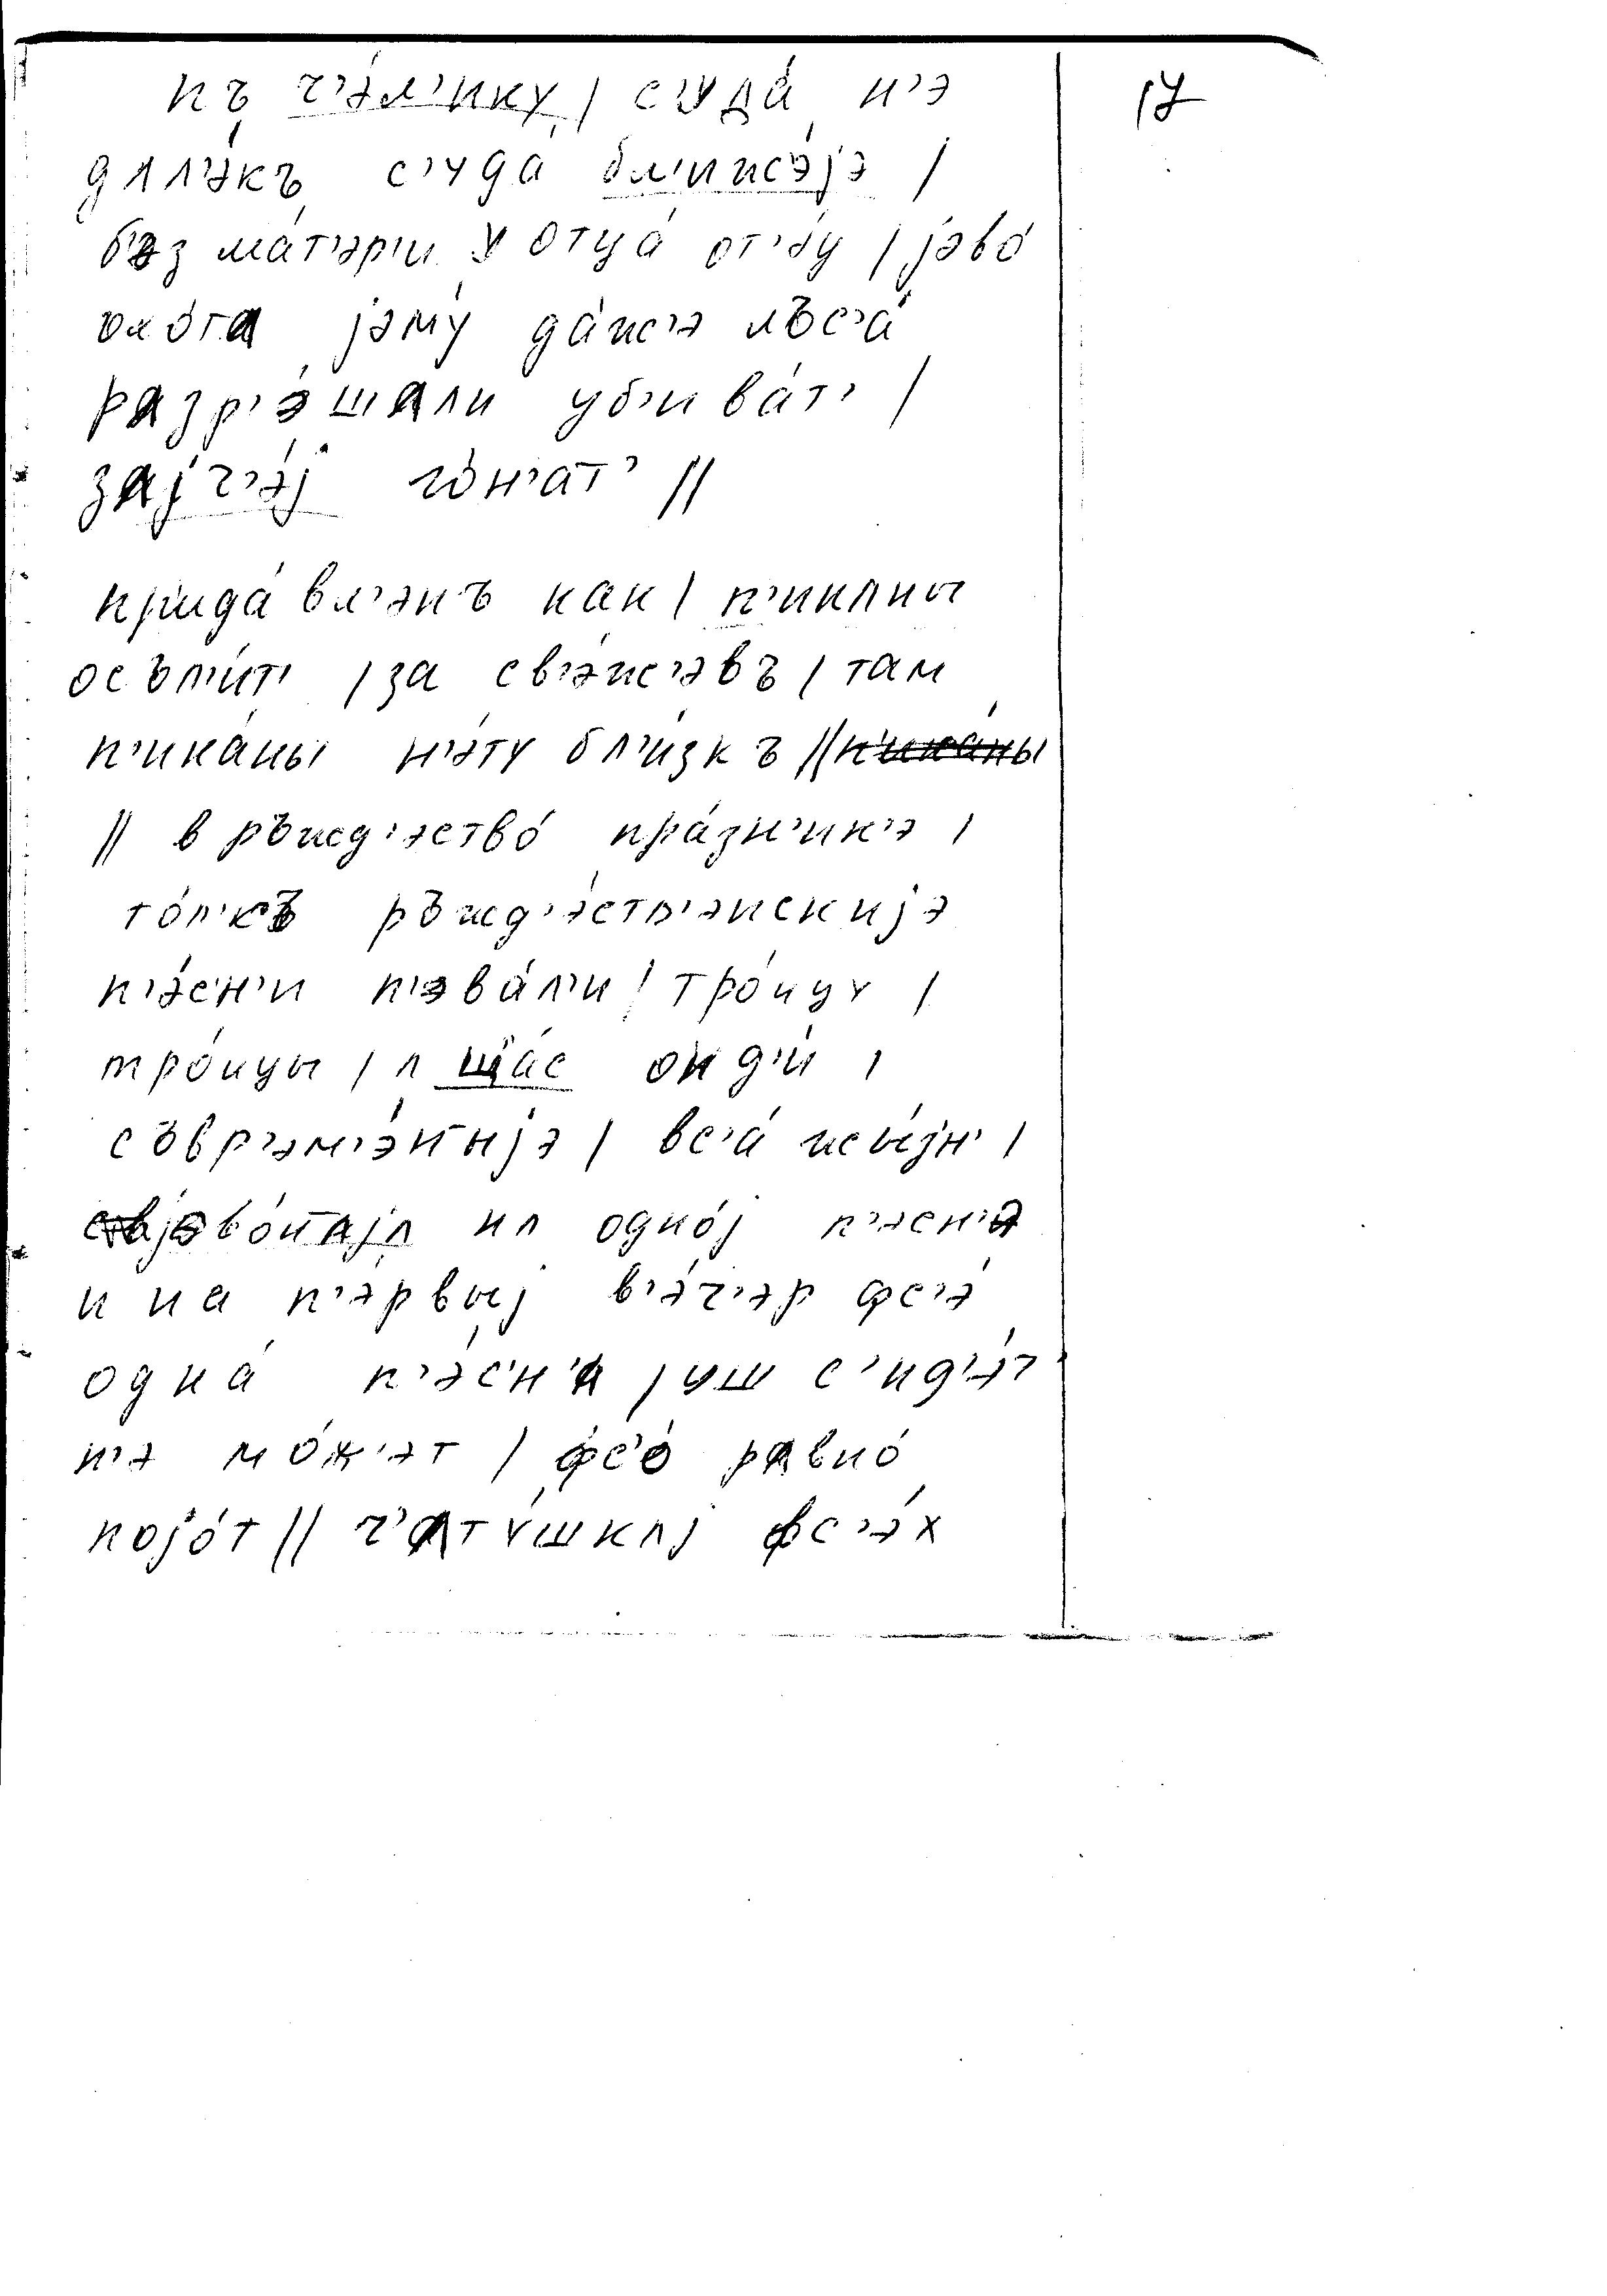 нъ ч’э́л’ику, / с’уда́ н’э 17
дʌл’э́къ с’уда́ бл’ижэ́jэ /
б’эз ма́т’эр’и у отца́ от’э́ц / jэво́
ъхо́та jэму́ да́ж’э лъс’а́
разр’эша́ли уб’ива́т’ /
заjч’э́j го́н’ат’ //
прида́вл’энъ как / п’икʌны
осъп’и́т’ / за св’э́ж’эвъ / там
п’ика́ны н’э́ту бл’и́зкъ //
// в ръжд’эство́ пра́зн’ик’э /
то́л’къ ръжд’э́ств’энскиjэ
п’э́с’н’и п’эва́л’и / тро́ицу /
тро́ицы / ʌ ща́с он̄ д’и́ /
съвр’эм’э́н̄ыjэ / вс’а́ жы́з’н’ /
jэво́н̄аjʌ нʌ одно́j п’э́сн’э
и на п’э́рвыj в’э́ч’эр фс’э́
одна́ п’э́с’н’а / уш с’ид’э́т’
н’э мо́ж’эт / фс’о́ равно́
поjо́т // ч’ату́шкʌj фс’э́х